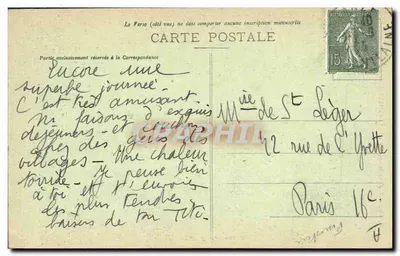 Le Verso (côté vue) ne doit comporter aucune inscription manuscrite
CARTE POSTALE
Partie exclusivement réservée à la Correspondance
15
Encore une
superbe journée.
C'est très amusant.
faisons d'exquis
déjeuners - et
chez des gens des
villages - Une chaleur
torride. Je pense bien
à toi et t'envoies
les plus tendres
baisers de ton Titi.
de St Léger
42 rue de l'Yvette
Paris 16e.